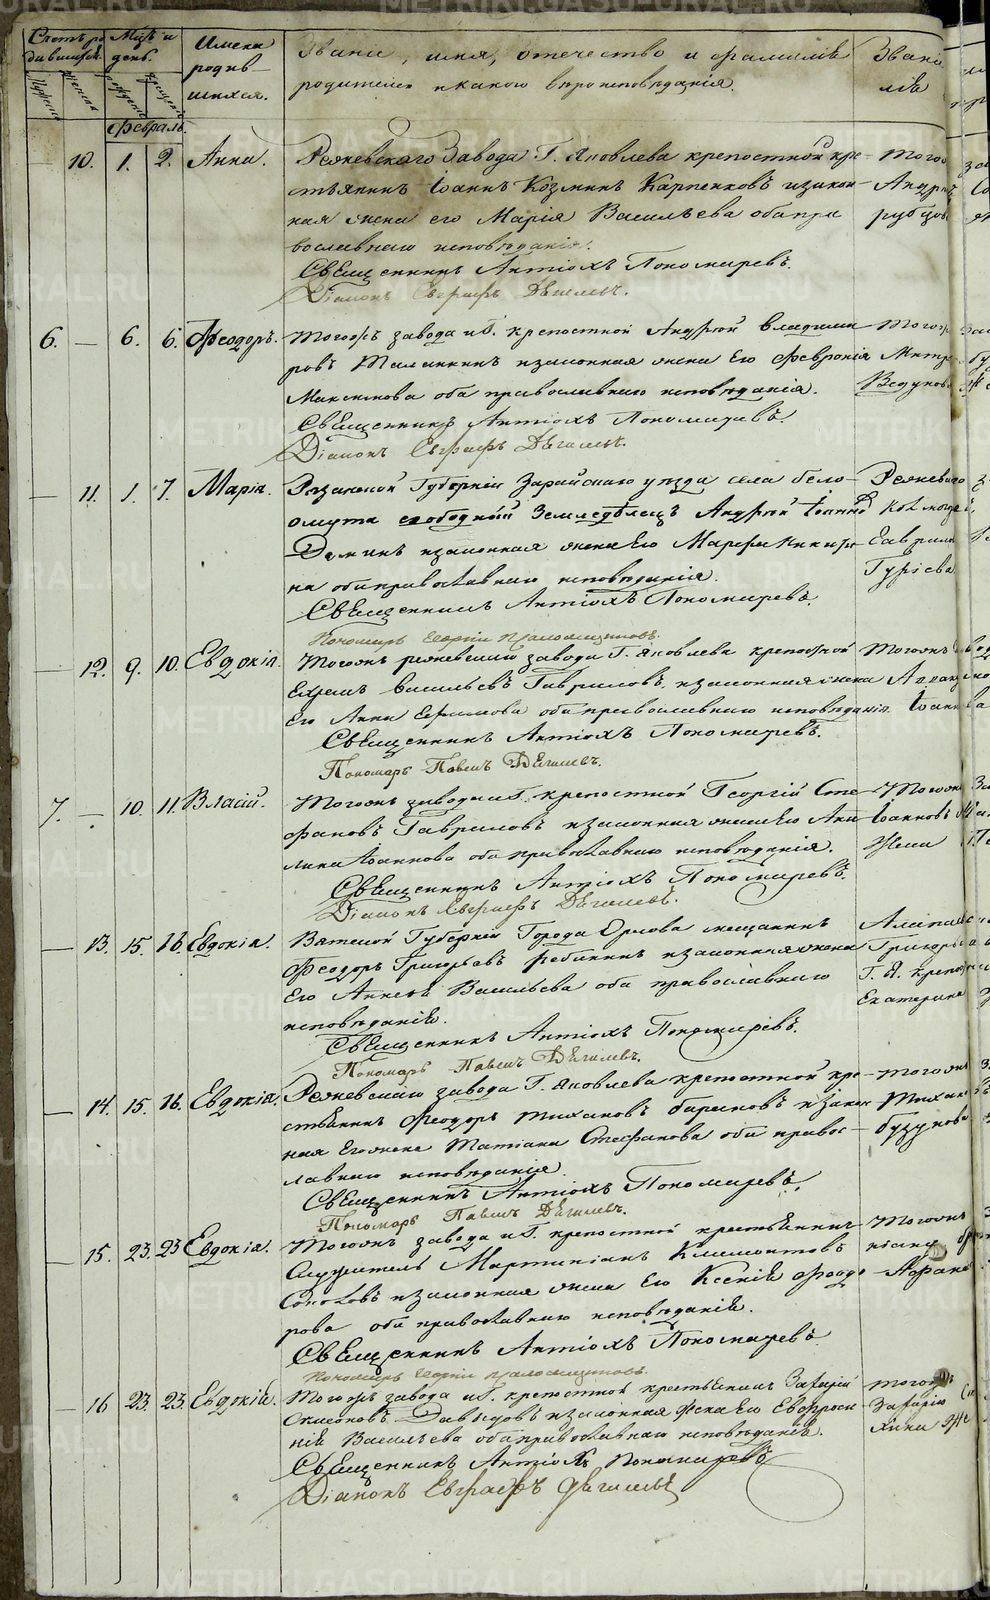 Счетъ ро
дившихся.
Мцъ и
день.
Имена
родив
шихся.
Званіе, имя, отечество и фамилія
родителей и какого вероисповѣданія.
Звані
Февраль.
10. 1. 2. Анна.
Режевскаго Завода Г. Яковлева крепостной кре-
стьянинъ Іоаннъ Козминъ Карпенковъ и закон-
ная жена его Марія Васильева оба пра
вославнаго исповѣданія.
Священникъ Антіохъ Пономаревъ.
Діаконъ Евграфъ Дягилевъ.
Того
Андр
рубцов
6. — 6. 6. Феодоръ.
Тогожъ завода и Г. крепостной Андрей Владими
ровъ и законная жена Его Феврония
Максимова оба православнаго исповѣданія.
Священникъ Антіохъ Пономаревъ.
Діаконъ Евграфъ Дягилевъ.
Тогож
Митр
Ведунов
— 11. 1. 7. Марія.
Рязанской Губерніи Зарайскаго уѣзда села бело-
омута свободный Земледѣлецъ Андрей Іоанно
Деминъ и законная жена Его Марфа Никифо
на оба православнаго исповѣданія.
Священникъ Антіохъ Пономаревъ.
Пономарь Георгій
Режевского
Гаврила
Гурьева
— 12. 9. 10. Евдокія.
Тогожъ режевскаго завода Г. Яковлева крепостной
Ефремъ Васильевъ Гавриловъ, и законная жена
Его Анна Ефимова оба православнаго исповѣданія.
Священникъ Антіохъ Пономаревъ.
Пономарь Павелъ Дягилевъ.
Тогожъ
Іоанн
7. — 10. 11. Власій.
Тогожъ завода и Г. крепостной Георгій Сте
фановъ Гавриловъ и законная жена Его Аки
лина Іоаннова оба православнаго исповѣданія.
Священникъ Антіохъ Пономаревъ.
Діаконъ Евграфъ Дягилевъ.
Тогожъ
Іоанновъ
Жена
— 13. 15. 16. Евдокія.
Вятской Губерніи Города Орлова мещанинъ
Феодоръ Григорьевъ Рябининъ и законная жена
Его Анисья Васильева оба православнаго
исповѣданія.
Священникъ Антіохъ Пономаревъ.
Пономарь Павелъ Дягилевъ.
Григорь
Г. Я. крепос
Екатерина
— 14. 15. 16. Евдокія.
Режевскаго завода Г. Яковлева крепостной кре-
стьянинъ Феодоръ Тихановъ бариновъ и закон
ная Его жена Татіана Стефанова оба правос-
лавнаго исповѣданія.
Священникъ Антіохъ Пономаревъ.
Пономарь Павелъ Дягилевъ.
Тогожъ
Тихан
бузунова
— 15. 23. 23 Евдокія.
Тогожъ завода и Г. крепостной крестьянинъ
Служитель Мартиніанъ Климонтовъ
Соколовъ и законная жена Его Ксенія Феодо
рова оба православнаго исповѣданія.
Священникъ Антіохъ Пономаревъ
Пономарь Георгій
Тогожъ
— 16 23. 23. Евдокія.
Тогожъ завода и Г. крепостной крестьянинъ Захарій
Давыдовъ и законная жена Его Евфроси
нія Васильева оба православнаго исповѣданія.
Священникъ Антіохъ Пономаревъ
Діаконъ Евграфъ Дягилевъ
Тогожъ
Захарія